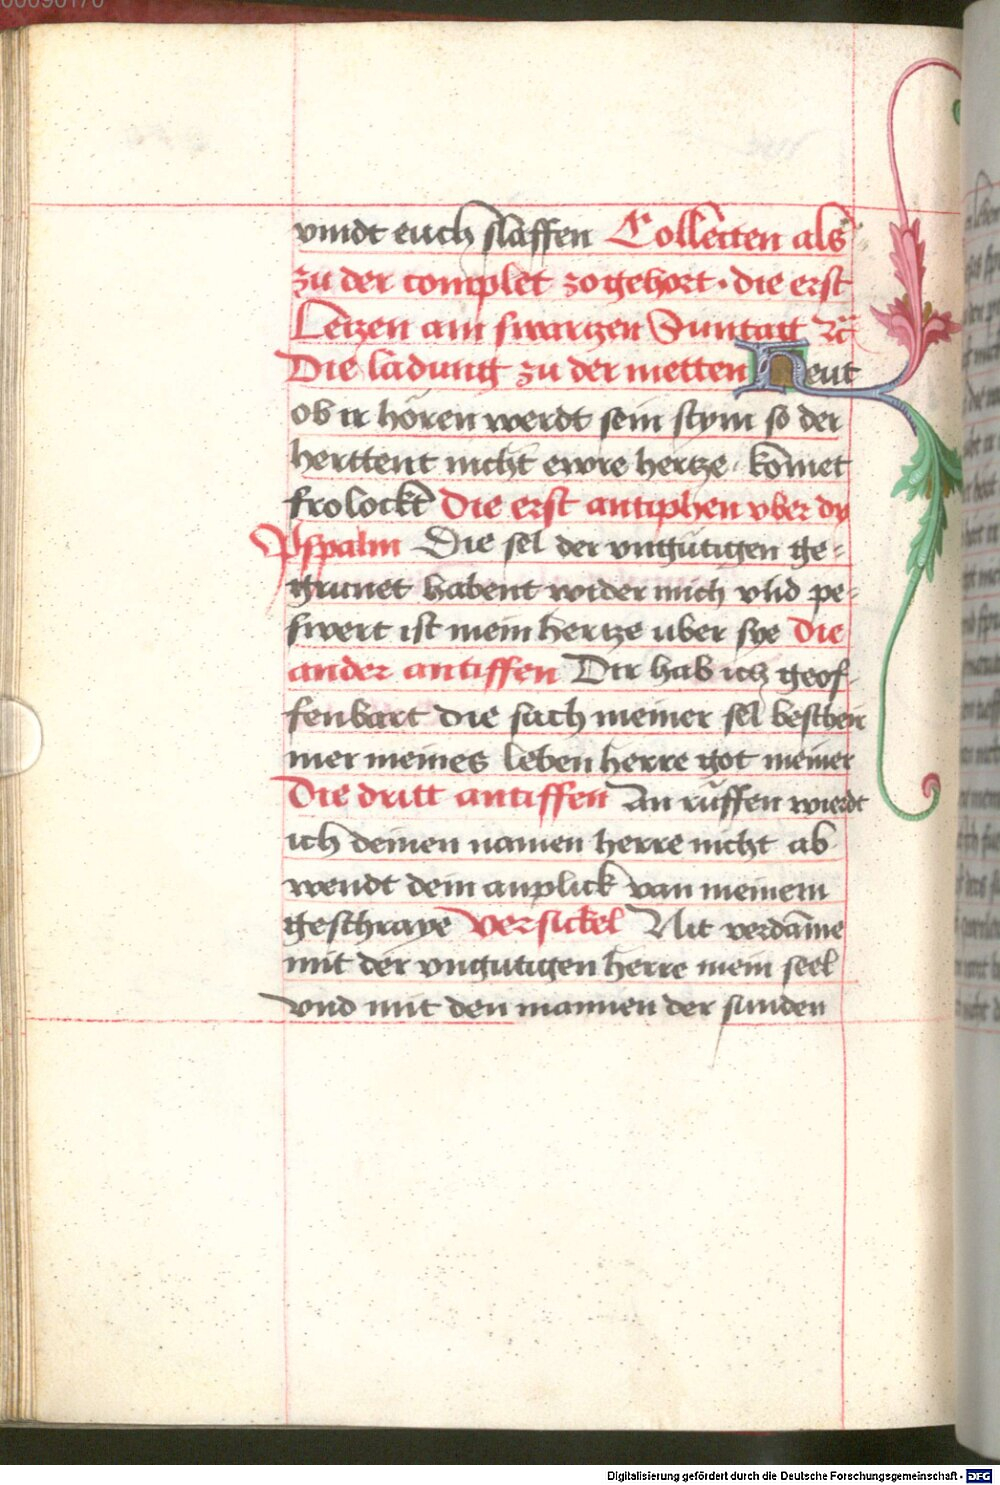 vindt euch slaffen Collecten als
zu der complet zogehort · die erst
Letzen am swartzen Suntag ꝛc̄
Die ladung zu der metten Heut
ob ir hören werdt sein stym so der
herttent nicht ewre hertze · komet
frolockt Die erst antiphen vber dy
Pspalm Die sel der vngütigen ge-
grunet habent wider mich vnd pe-
swert ist mein hertze uber sye Die
ander antiffen Dir hab ich geof-
fenbart die sach meiner sel beschir
mer meines leben herre got meiner
Die dritt antiffen An rüffen wierdt
ich deinen namen herre nicht ab
wendt dein anplick van meinem
geschraye Versickel Nit verdāme
mit der vngutigen herre mein seel
vnd mit den mannen der sunden
Digitalisierung gefördert durch die Deutsche Forschungsgemeinschaft - DFG